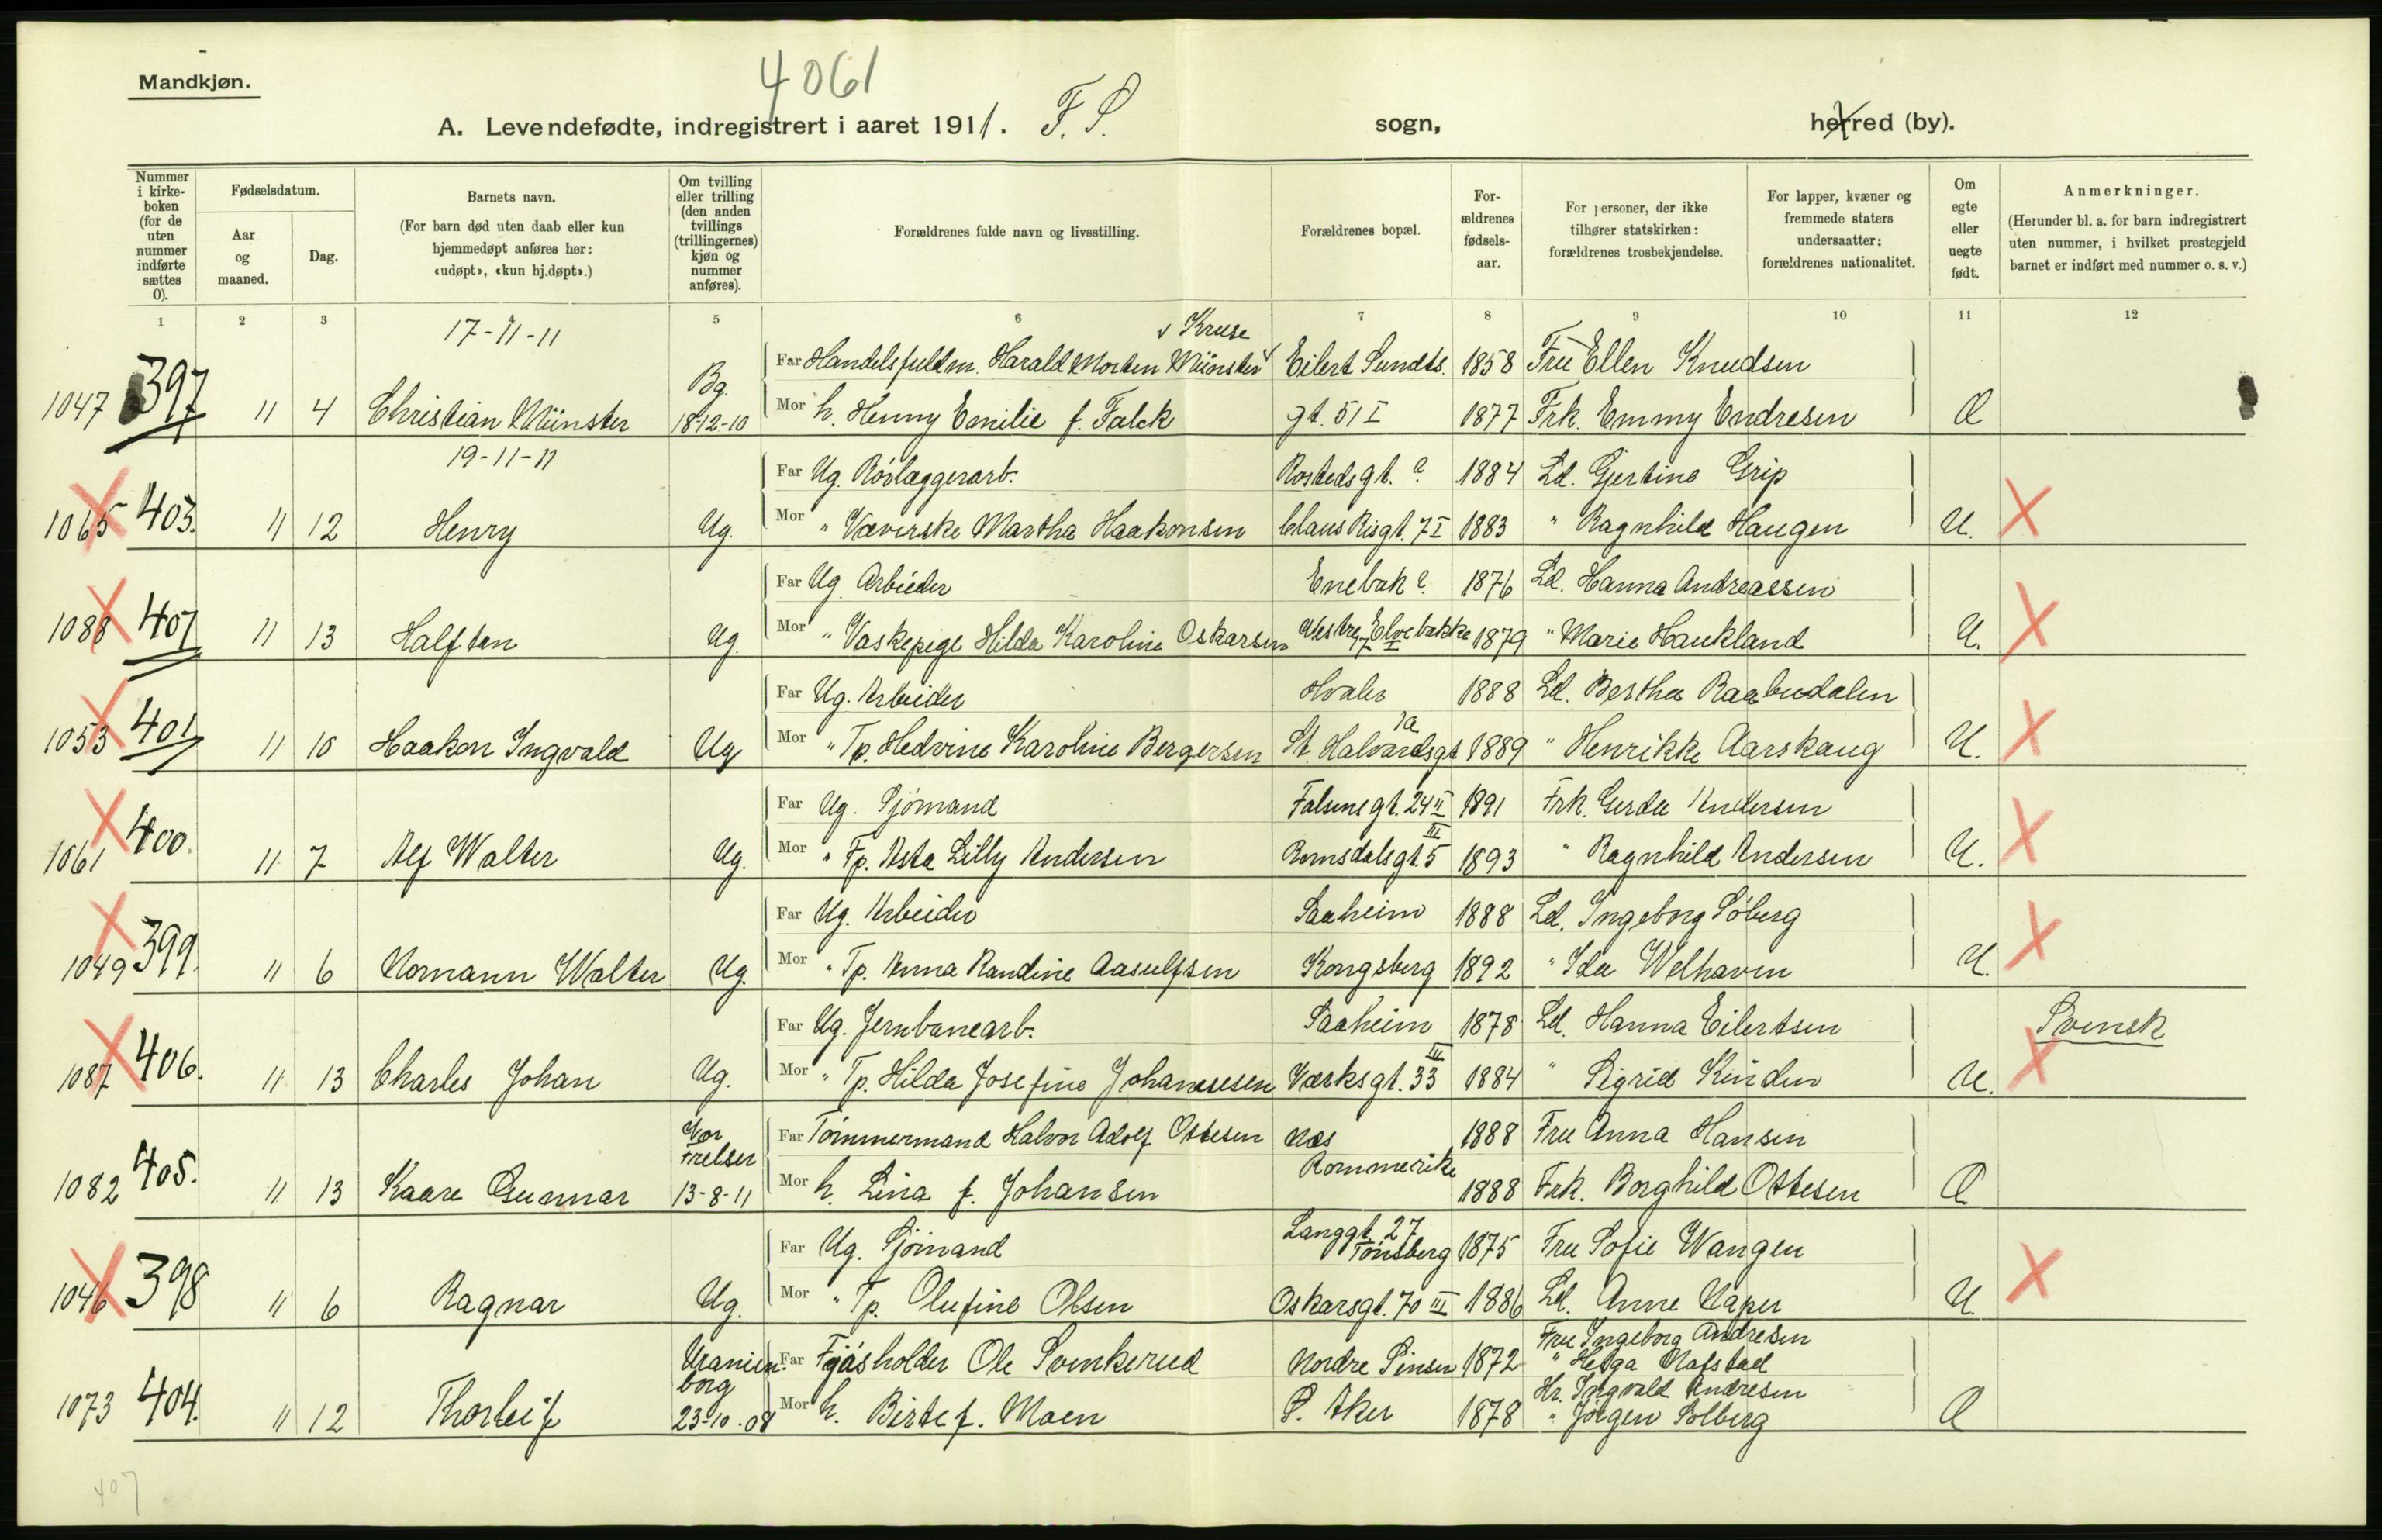 Mandkjøn.
4061
A. Levendefødte, indregistrert i aaret 1911. F. S. sogn, herred (by).
Nummer i kirkeboken (for de uten nummer indførte sættes 0).
Fødselsdatum.
Aar og maaned.
Dag.
Barnets navn.
(For barn død uten daab eller kun hjemmedøpt anføres her: «udøpt», «kun hj.døpt».)
Om tvilling eller trilling (den anden tvillings (trillingernes) kjøn og nummer anføres).
Forældrenes fulde navn og livsstilling.
Forældrenes bopæl.
Forældrenes fødselsaar.
For personer, der ikke tilhører statskirken: forældrenes trosbekjendelse.
For lapper, kvæner og fremmede staters undersaatter: forældrenes nationalitet.
Om egte eller uegte født.
Anmerkninger.
(Herunder bl. a. for barn indregistrert uten nummer, i hvilket prestegjeld barnet er indført med nummer o. s. v.)
1 2 3 4 5 6 7 8 9 10 11 12
17-11-11
v Kruse
Bg. Far Handelsfuldm. Harald Morten Münster Eilert Sundts. 1858 Fru Ellen Knudsen
1047 397 11 4 Christian Münster 18-12-10 Mor h. Henny Emilie f. Falck gt. 51 I 1877 Frk. Emmy Endresen Æ
19-11-11
Far Ug. Rørlæggerarb. Rostedsgt. ? 1884 Ld. Gjertine Grip
1065 403. 11 12 Henry Ug. Mor " Væverske Martha Haakonsen Claus Risgt. 7 I 1883 " Ragnhild Haugen U. X
Far Ug. Arbeider Enebak ? 1876 Ld. Hanna Andreassen
1088 407 11 13 Halfdan Ug. Mor " Vaskepige Hilda Karoline Oskarsen Vestre Elvebakke 7 I 1879 " Marie Haukland U. X
Far Ug. Arbeider Hvaler 1888 Ld. Bertha Raabudalen
1053 401 11 10 Haakon Ingvald Ug Mor " Tp. Hedvine Karoline Bergersen St. Halvardsgt 1a 1889 " Henrikke Aarskaug U. X
Far Ug. Sjömand Falsensgt. 24 II 1891 Frk. Gerda Andersen
1061 400. 11 7 Alf Walter Ug. Mor " Fp. Asta Lilly Andersen Romsdalsgt. 5 III 1893 " Ragnhild Andersen U. X
Far Ug. Arbeider Saaheim 1888 Ld. Ingeborg Söberg
1049 399. 11 6 Normann Walter Ug. Mor " Tp. Anna Randine Aasulfsen Kongsberg 1892 " Ida Welhaven U. X
Far Ug. Jernbanearb. Saaheim 1878 Ld. Hanna Eilertsen Svensk
1087 406. 11 13 Charles Johan Ug. Mor " Tp. Hilda Josefine Johannesen Værksgt. 33 III 1884 " Sigrid Kinden U. X
Vor Frelser Far Tömmermand Halvor Adolf Ottesen Næs 1888 Fru Anna Hansen
1082 405. 11 13 Kaare Gunnar 13-8-11 Mor h. Lina f. Johansen Rommerike 1888 Frk. Borghild Ottesen Æ
Far Ug. Sjömand Langgt. 27 Tönsberg 1875 Fru Sofie Wangen
1046 398 11 6 Ragnar Ug. Mor " Tp. Olufine Olsen Oskarsgt. 70 III 1886 Ld. Anne Naper U. X
Uranienborg Far Fjøsholder Ole Svenkerud Nordre Sinsen 1872 Fru Ingeborg Andresen
" Helga Nafstad
1073 404. 11 12 Thorleif 23-10-08 Mor h. Birte f. Moen Ö. Aker 1878 Hr. Ingvald Andresen
" Jörgen Solberg Æ
407